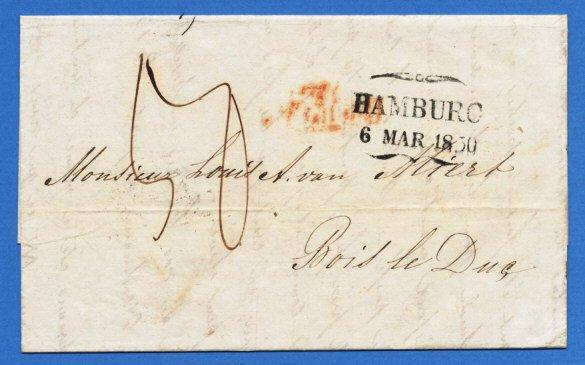 HAMBURG
6 MAR 1830
Monsieur Louis A. van
Bois le Duc